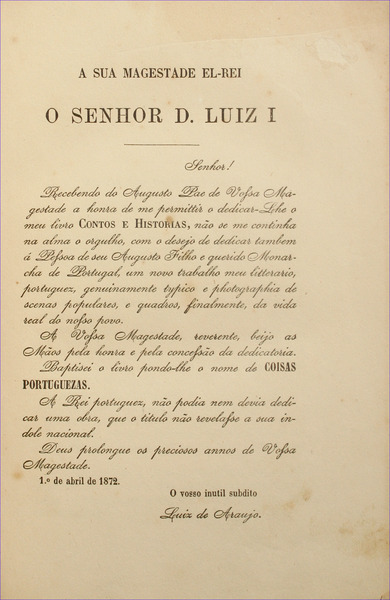 A SUA MAGESTADE EL-REI
O SENHOR D. LUIZ I
Senhor!
Recebendo do Augusto Pae de Vossa Ma-
gestade a honra de me permittir o dedicar-Lhe o
meu livro CONTOS E HISTORIAS, não se me continha
na alma o orgulho, com o desejo de dedicar tambem
á Pessoa de seu Augusto Filho e querido Monar-
cha de Portugal, um novo trabalho meu litterario,
portuguez, genuinamente typico e photographia de
scenas populares, e quadros, finalmente, da vida
real do nosso povo.
A Vossa Magestade, reverente, beijo as
Mãos pela honra e pela concessão da dedicatoria.
Baptisei o livro pondo-lhe o nome de COISAS
PORTUGUEZAS.
A Rei portuguez, não podia nem devia dedi-
car uma obra, que o titulo não revelasse a sua in-
dole nacional.
Deus prolongue os preciosos annos de Vossa
Magestade.
1.º de abril de 1872.
O vosso inutil subdito
Luiz de Araujo.